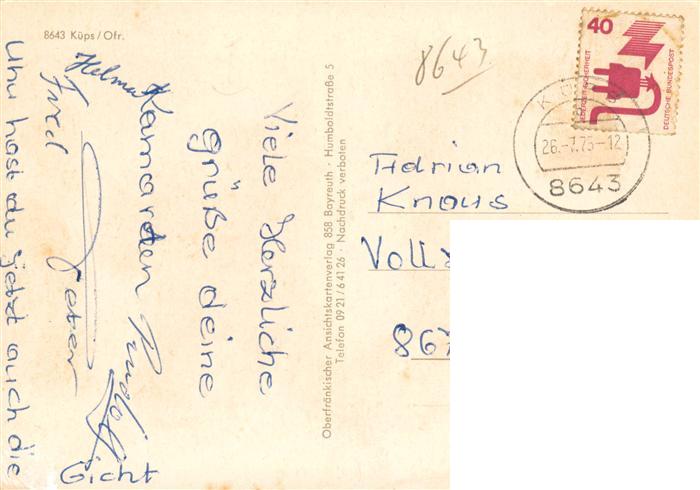 8643 Küps/Ofr.
8643
40
JEDERZEIT SICHERHEIT
DEUTSCHE BUNDESPOST
26.-7.75-12
8643
Viele Herzliche
grüße deine
Kamaraden
Helmut
Fred
Peter
Uhu hast du jetzt auch die
Gicht
Oberfränkischer Ansichtskartenverlag 858 Bayreuth · Humboldtstraße 5
Telefon 0921/64126 · Nachdruck verboten
Adrian
Knaus
Volls
867